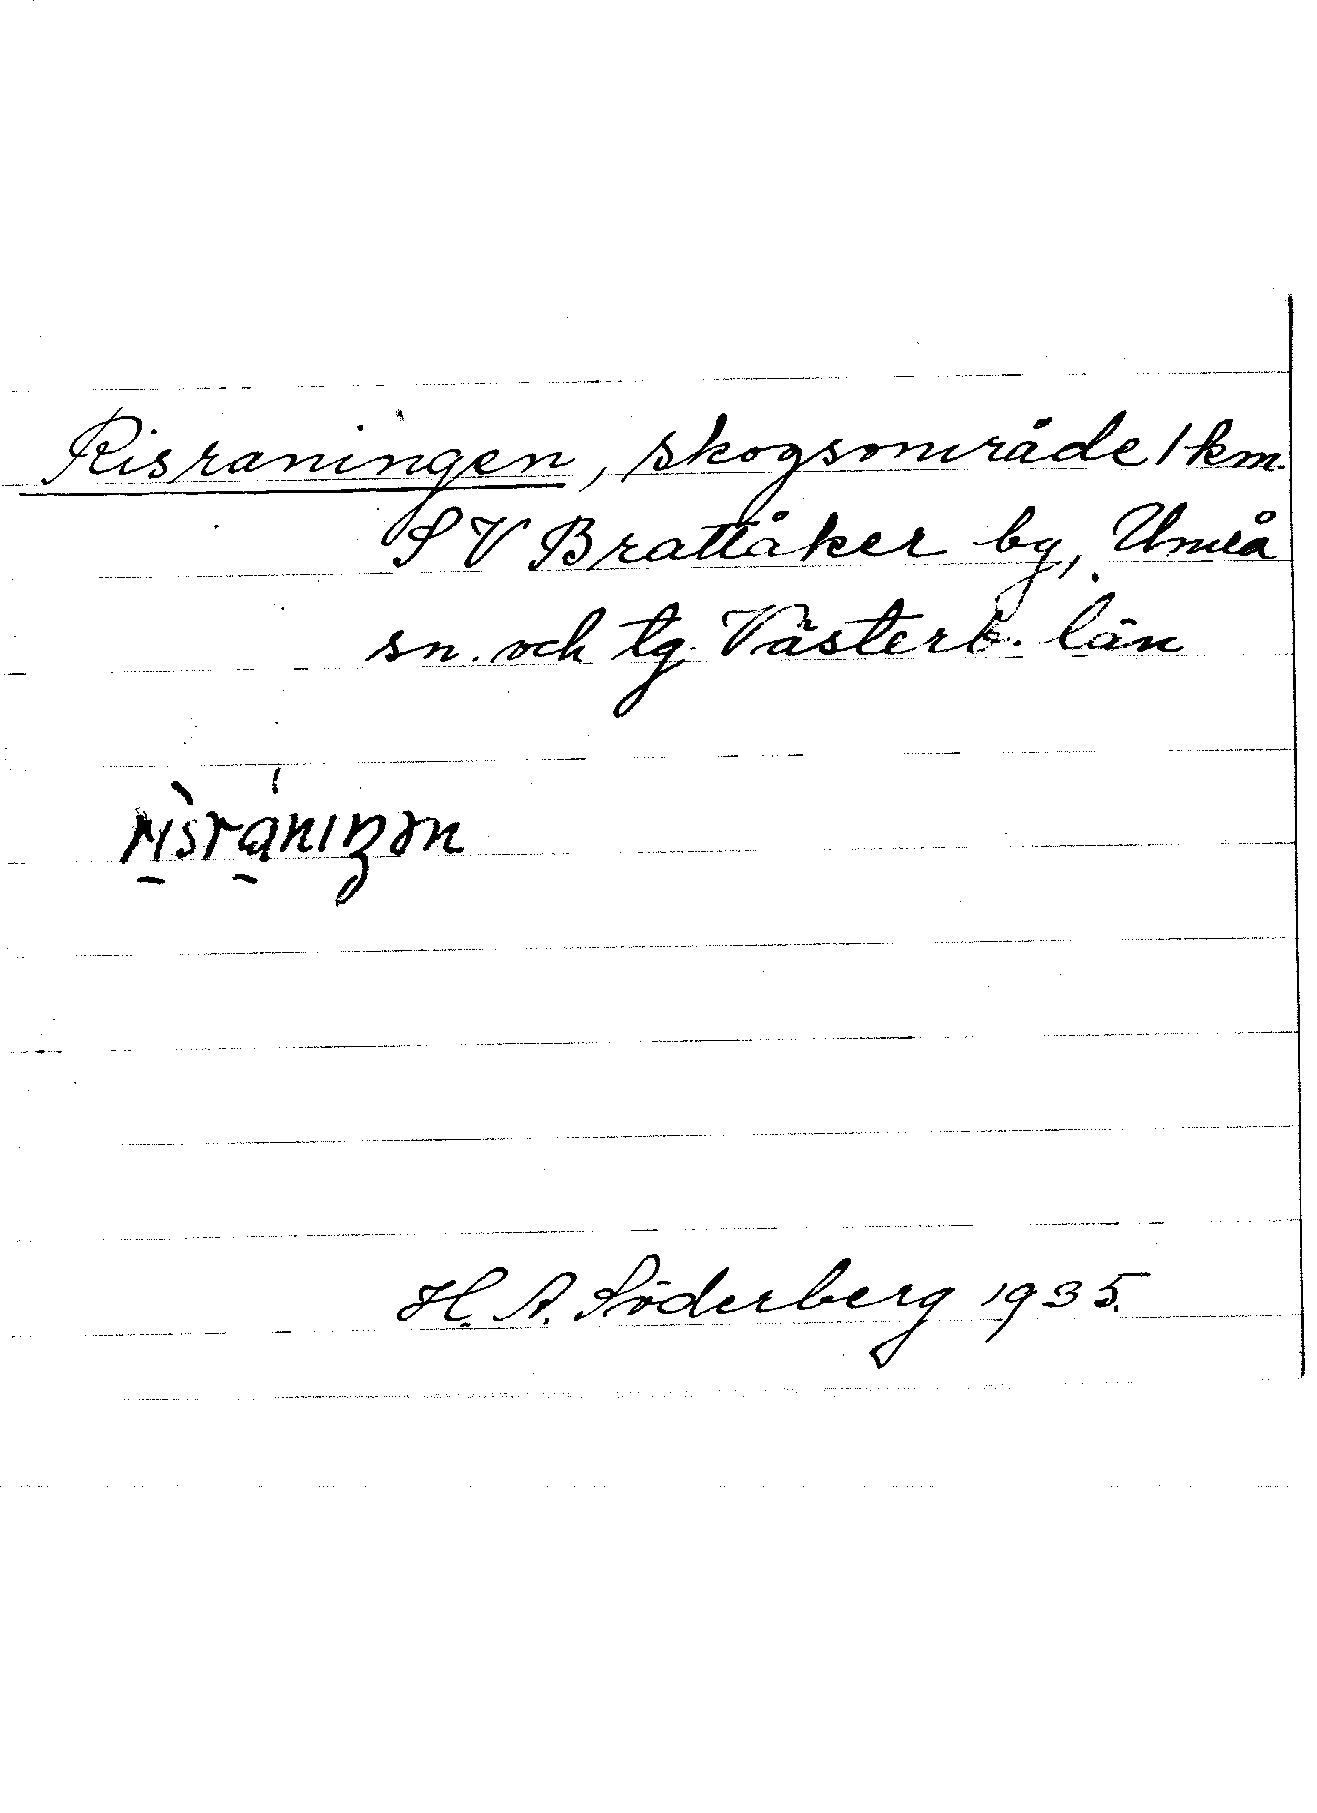 Risraningen, skogsområde 1 km.
S V Brattåker by, Umeå
sn. och tg. Västerb. län
H. A. Söderberg 1935.